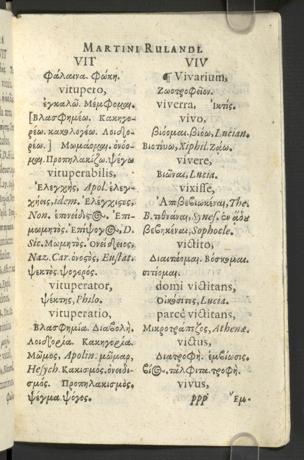 MARTINI RULANDI.
VIT
Φάλαινα. Φώκη.
vitupero,
ἐγκαλῶ. Μέμφομαι.
[Βλασφημέω. Κακηγο-
ρέω. κακολογέω. Λοιδο-
ρέω.] Μωμάομαι.
μαι. Προπηλακίζω. ψέγω
vituperabilis,
Ἐλεγχὴς, Apol. ἐλεγ-
χήεις, idem. Ἐλέγχιστος,
Non. Ἐπι-
μωμητὸς. Ἐπίψογος, D.
Sic. Μωμητὸς. Ὀνείδειος,
Naz. Car. Eustat.
ψεκτὸς ψογερός.
vituperator,
ψέκτης, Philo.
vituperatio,
Βλασφημία. Διαβολή.
Λοιδορία. Κακηγορία.
Μῶμος, Apolin. μῶμαρ,
Hesych. Κακισμὸς. ὀνειδι-
σμός. Προπηλακισμὸς.
ψέγμα. ψόγος.
VIV
¶ Vivarium,
Ζωοτροφεῖον.
viverra, Ἴκτις.
vivo,
βιόομαι. βιόω, Lucian.
Βιοτεύω, Xiphil. ζάω.
vivere,
Βιῶναι, Lucia.
vixisse,
Ἀπεβεβιωκέναι, The.
B. τεθνάναι, Synes.
βεβηκέναι, Sophocle.
victito,
Διαιτάομαι. Βόσκομαι.
σιτέομαι.
domi victitans,
Οἰκόσιτος, Lucia.
parcè victitans,
Μικροτράπεζος, Athenæ.
victus,
Διατροφή. ἐμβίωσις.
βίος. τροφή.
vivus,
ppp Ἔμ-